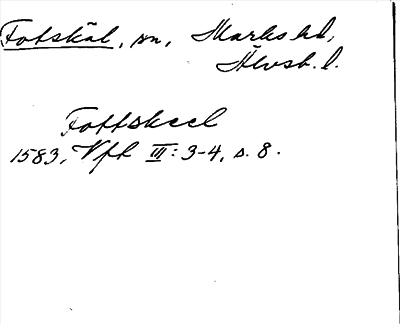 Fotskäl, sn, Marks hd,
Älvsb. l.
Fottskeel
1583, Vfh III: 3-4, s. 8.